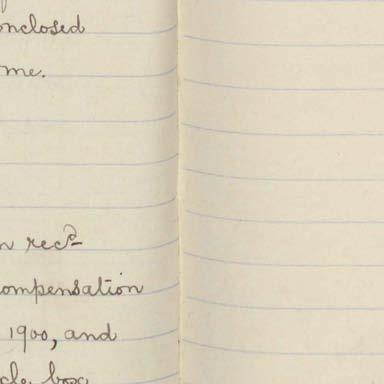 enclosed
me.
n recd
compensation
1900, and
cle box